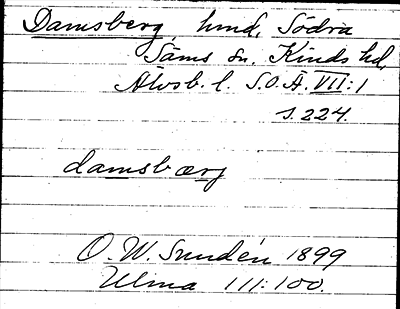 Damsberg, hmd, Södra
Säms sn. Kinds hd,
Älvsb. l. S.O.Ä. VII:1
s. 224.
damsbærg
O. W. Sundén 1899
Ulma 111:100.